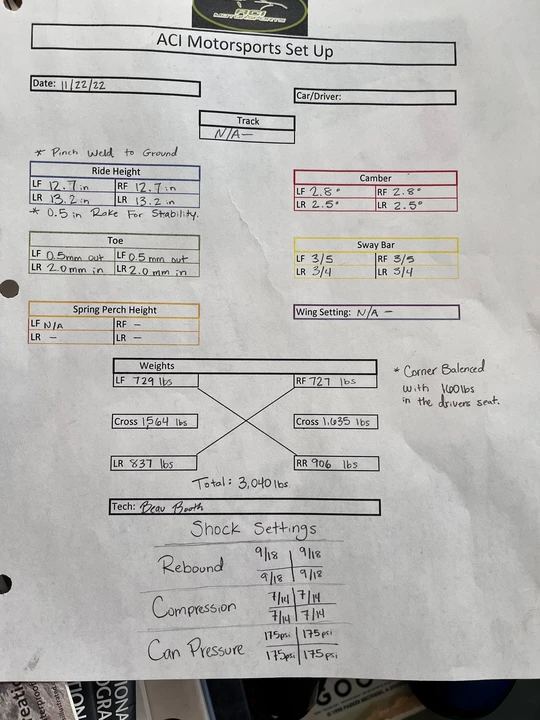 ACI Motorsports Set Up
Date: 11/22/22
Car/Driver:
Track
N/A—
* Pinch Weld to Ground
Ride Height
LF 12.7 in RF 12.7 in
LR 13.2 in LR 13.2 in
* 0.5 in Rake For Stability.
Camber
LF 2.8° RF 2.8°
LR 2.5° LR 2.5°
Toe
LF 0.5mm out LF 0.5mm out
LR 2.0mm in LR 2.0mm in
Sway Bar
LF 3/5 RF 3/5
LR 3/4 LR 3/4
Spring Perch Height
LF N/A RF –
LR – LR –
Wing Setting: N/A –
Weights
LF 729 lbs RF 727 lbs
* Corner Balenced
with 160lbs
in the drivers seat.
Cross 1,564 lbs Cross 1,635 lbs
LR 837 lbs RR 906 lbs
Total: 3,040 lbs
Tech: Beau Booth
Shock Settings
Rebound
9/18 9/18
9/18 9/18
Compression
7/14 7/14
7/14 7/14
Can Pressure
175psi 175psi
175psi 175psi